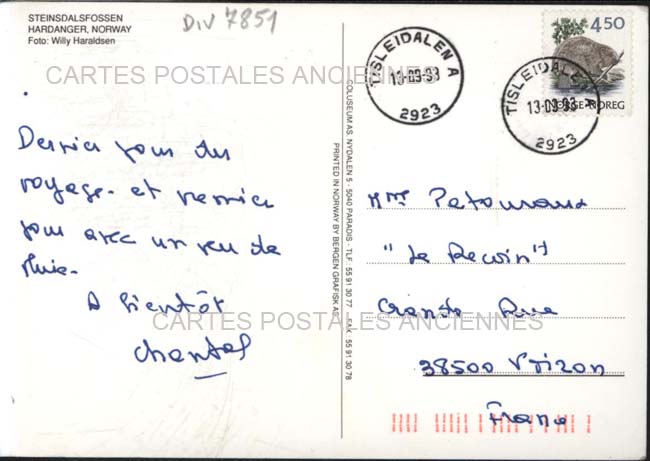 STEINSDALSFOSSEN
HARDANGER, NORWAY
Foto: Willy Haraldsen
DIV 7851
CARTES POSTALES ANCIENNES
Dernier jour du
voyage - et premier
jour avec un peu de
pluie.
A bientôt
Chantal
COLUSEUM AS. NYDALEN 5 - 5040 PARADIS - TLF. 55 91 30 77 - FAX. 55 91 30 78
PRINTED IN NORWAY BY BERGEN GRAFISK AS
TISLEIDALEN A
13-09-93
2923
450
NORGE NOREG
TISLEIDALEN A
13-09-93
2923
Mme
"Le
Grande Rue
38500 Voiron
France
CARTES POSTALES ANCIENNES